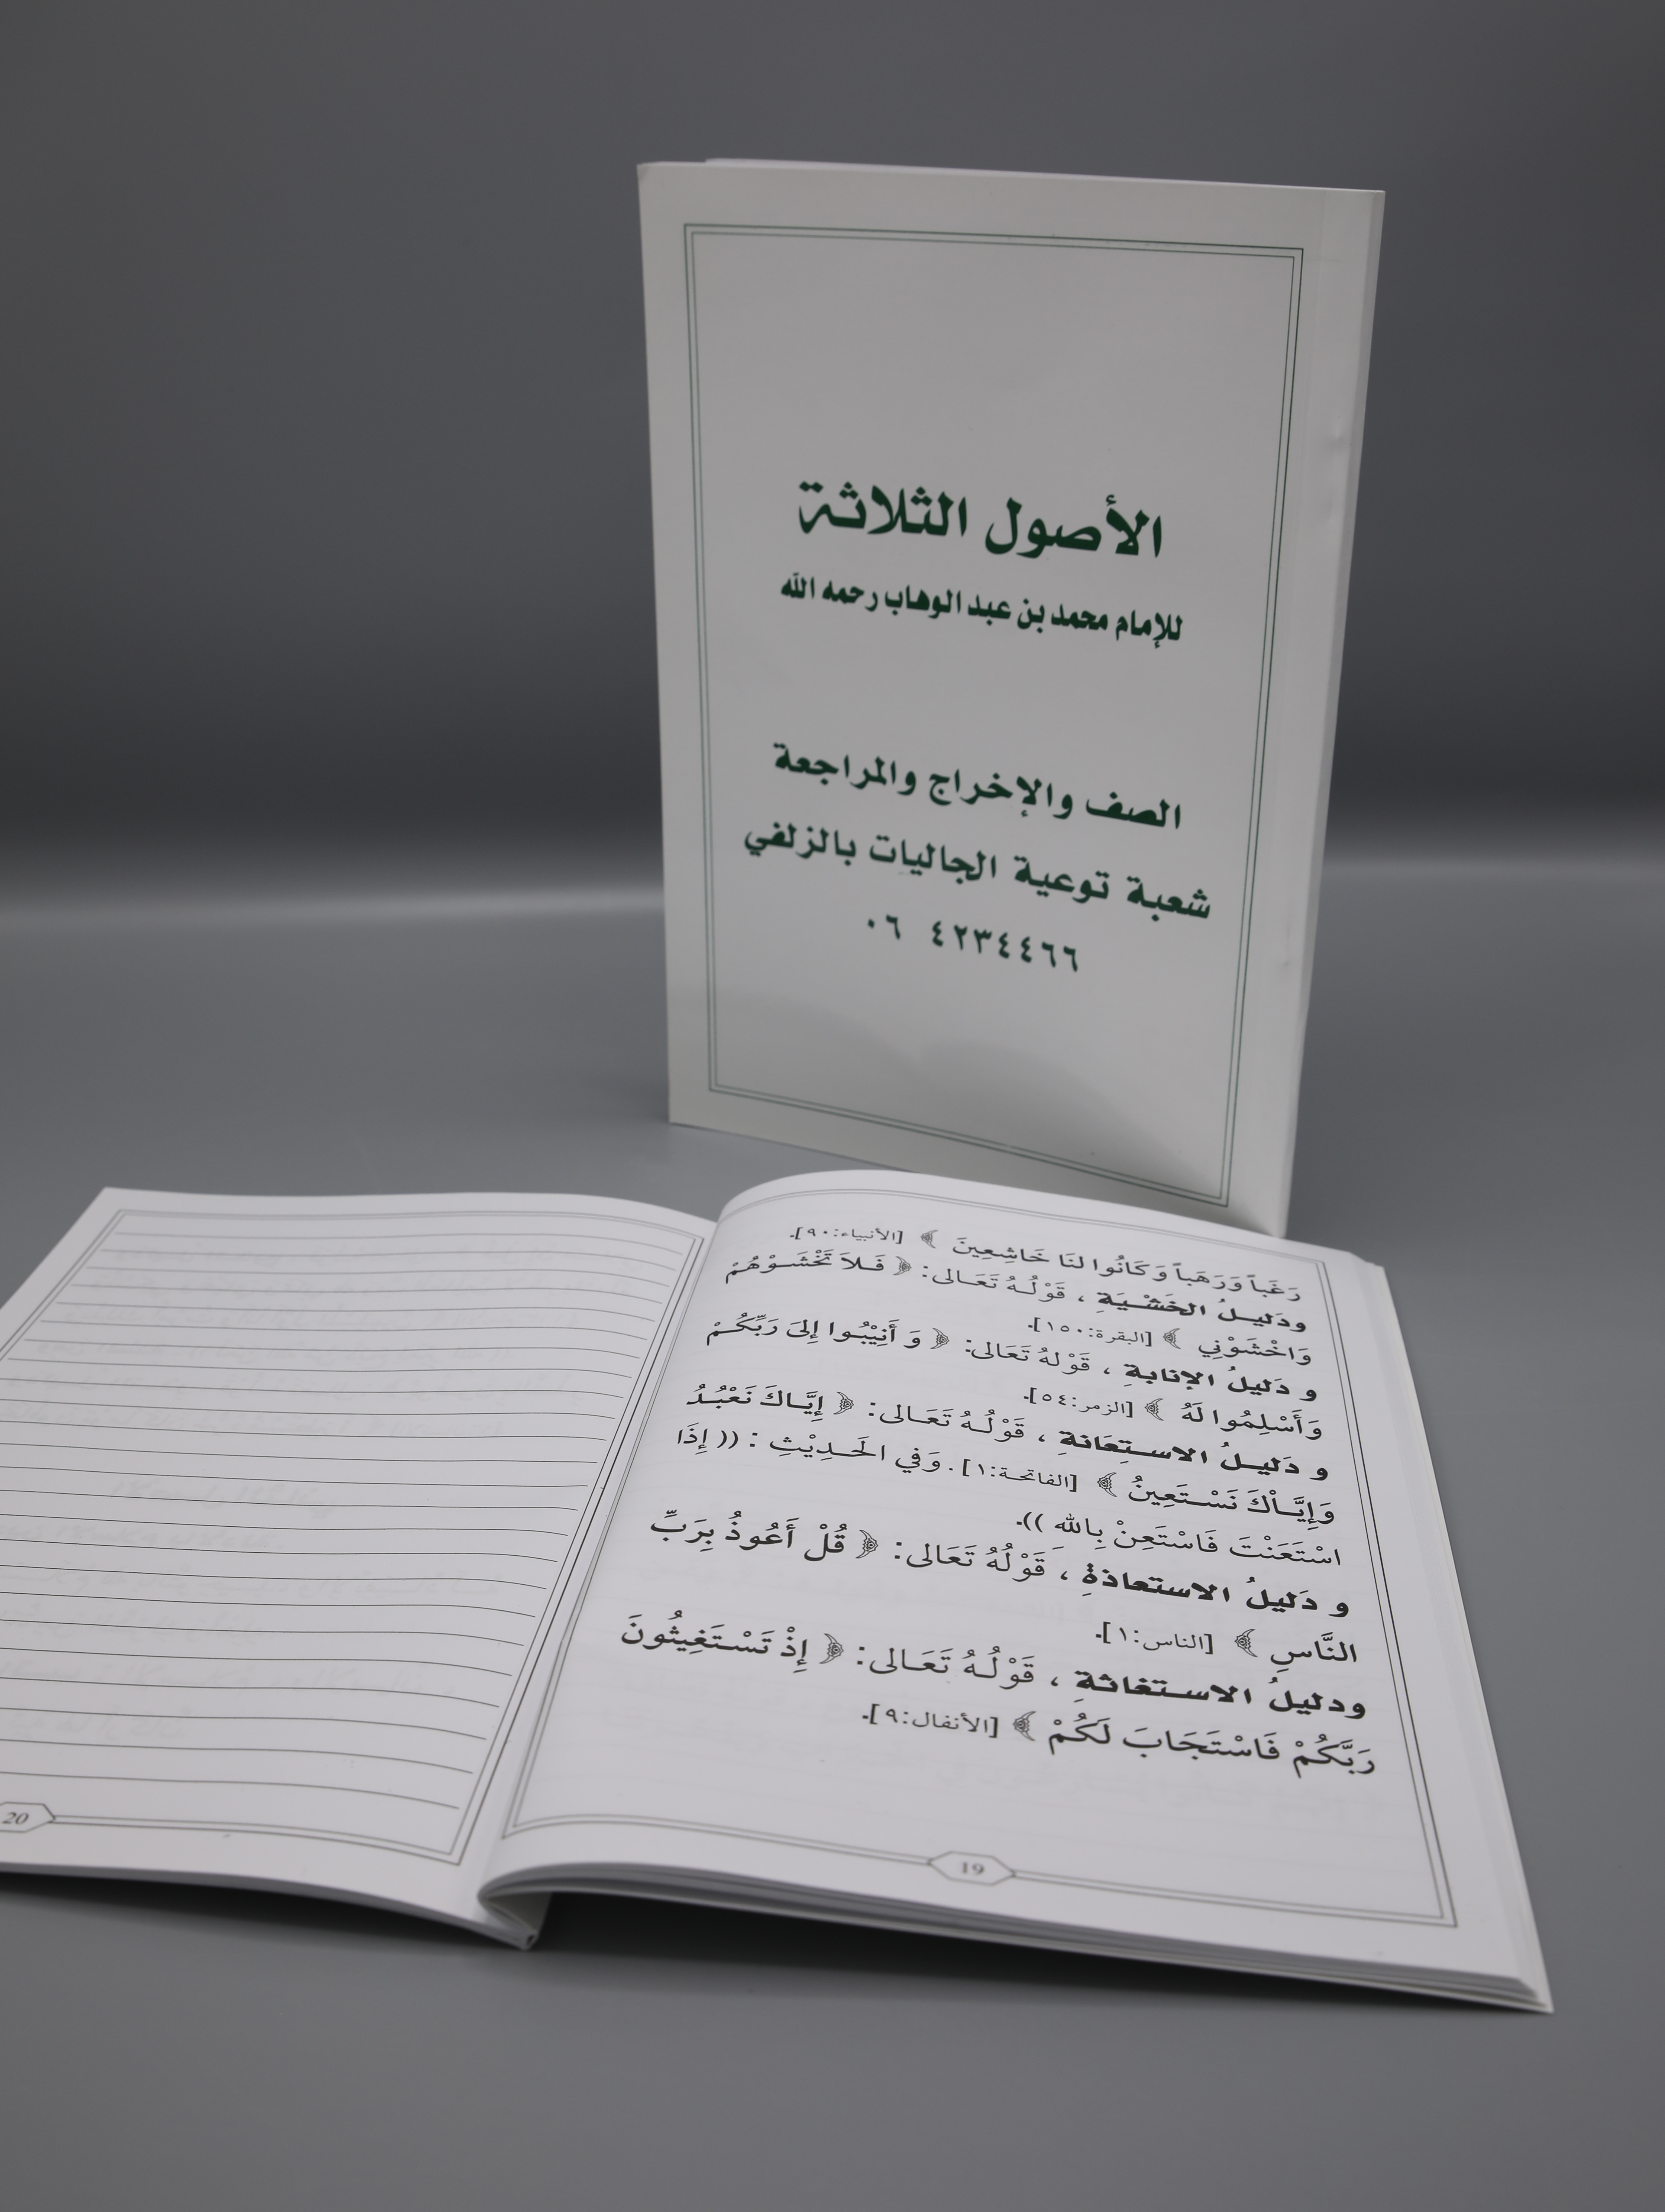 الأصول الثلاثة
للإمام محمد بن عبد الوهاب رحمه الله
الصف والإخراج والمراجعة
شعبة توعية الجاليات بالزلفي
٠٦ ٤٢٣٤٤٦٦
رَغَباً وَرَهَباً وَكَانُوا لنَا خَاشِعِينَ ﴾ [الأنبياء:٩٠].
ودَليــلُ الخَشْـيَةِ ، قَوْلُـهُ تَعَـالى: ﴿ فَـلاَ تَخْشَـوْهُمْ
وَاخْشَوْنِي ﴾ [البقرة:١٥٠].
و دَليلُ الإنابةِ ، قَوْلهُ تَعَالى: ﴿ وَ أَنِيْبُـوا إلىَ رَبِّكُـمْ
وَأَسْلِمُوا لَهُ ﴾ [الزمر:٥٤].
و دَليـلُ الاسـتِعَانةِ ، قَوْلُـهُ تَعَـالى: ﴿ إيَّـاكَ نَعْبُـدُ
وَإيَّـاْكَ نَسْـتَعِينُ ﴾ [الفاتحـة:١] . وَفي الحَـدِيْثِ : (( إذَا
اسْتَعَنْتَ فَاسْتَعِنْ بِاللهِ )).
و دَليلُ الاستعاذةِ ، قَوْلُهُ تَعَالى: ﴿ قُلْ أَعُوذُ بِرَبِّ
النَّاسِ ﴾ [الناس:١].
ودليلُ الاسـتغاثةِ ، قَوْلُـهُ تَعَـالى: ﴿ إذْ تَسْـتَغِيثُونَ
رَبَّكُمْ فَاسْتَجَابَ لَكُمْ ﴾ [الأنفال:٩].
19
20